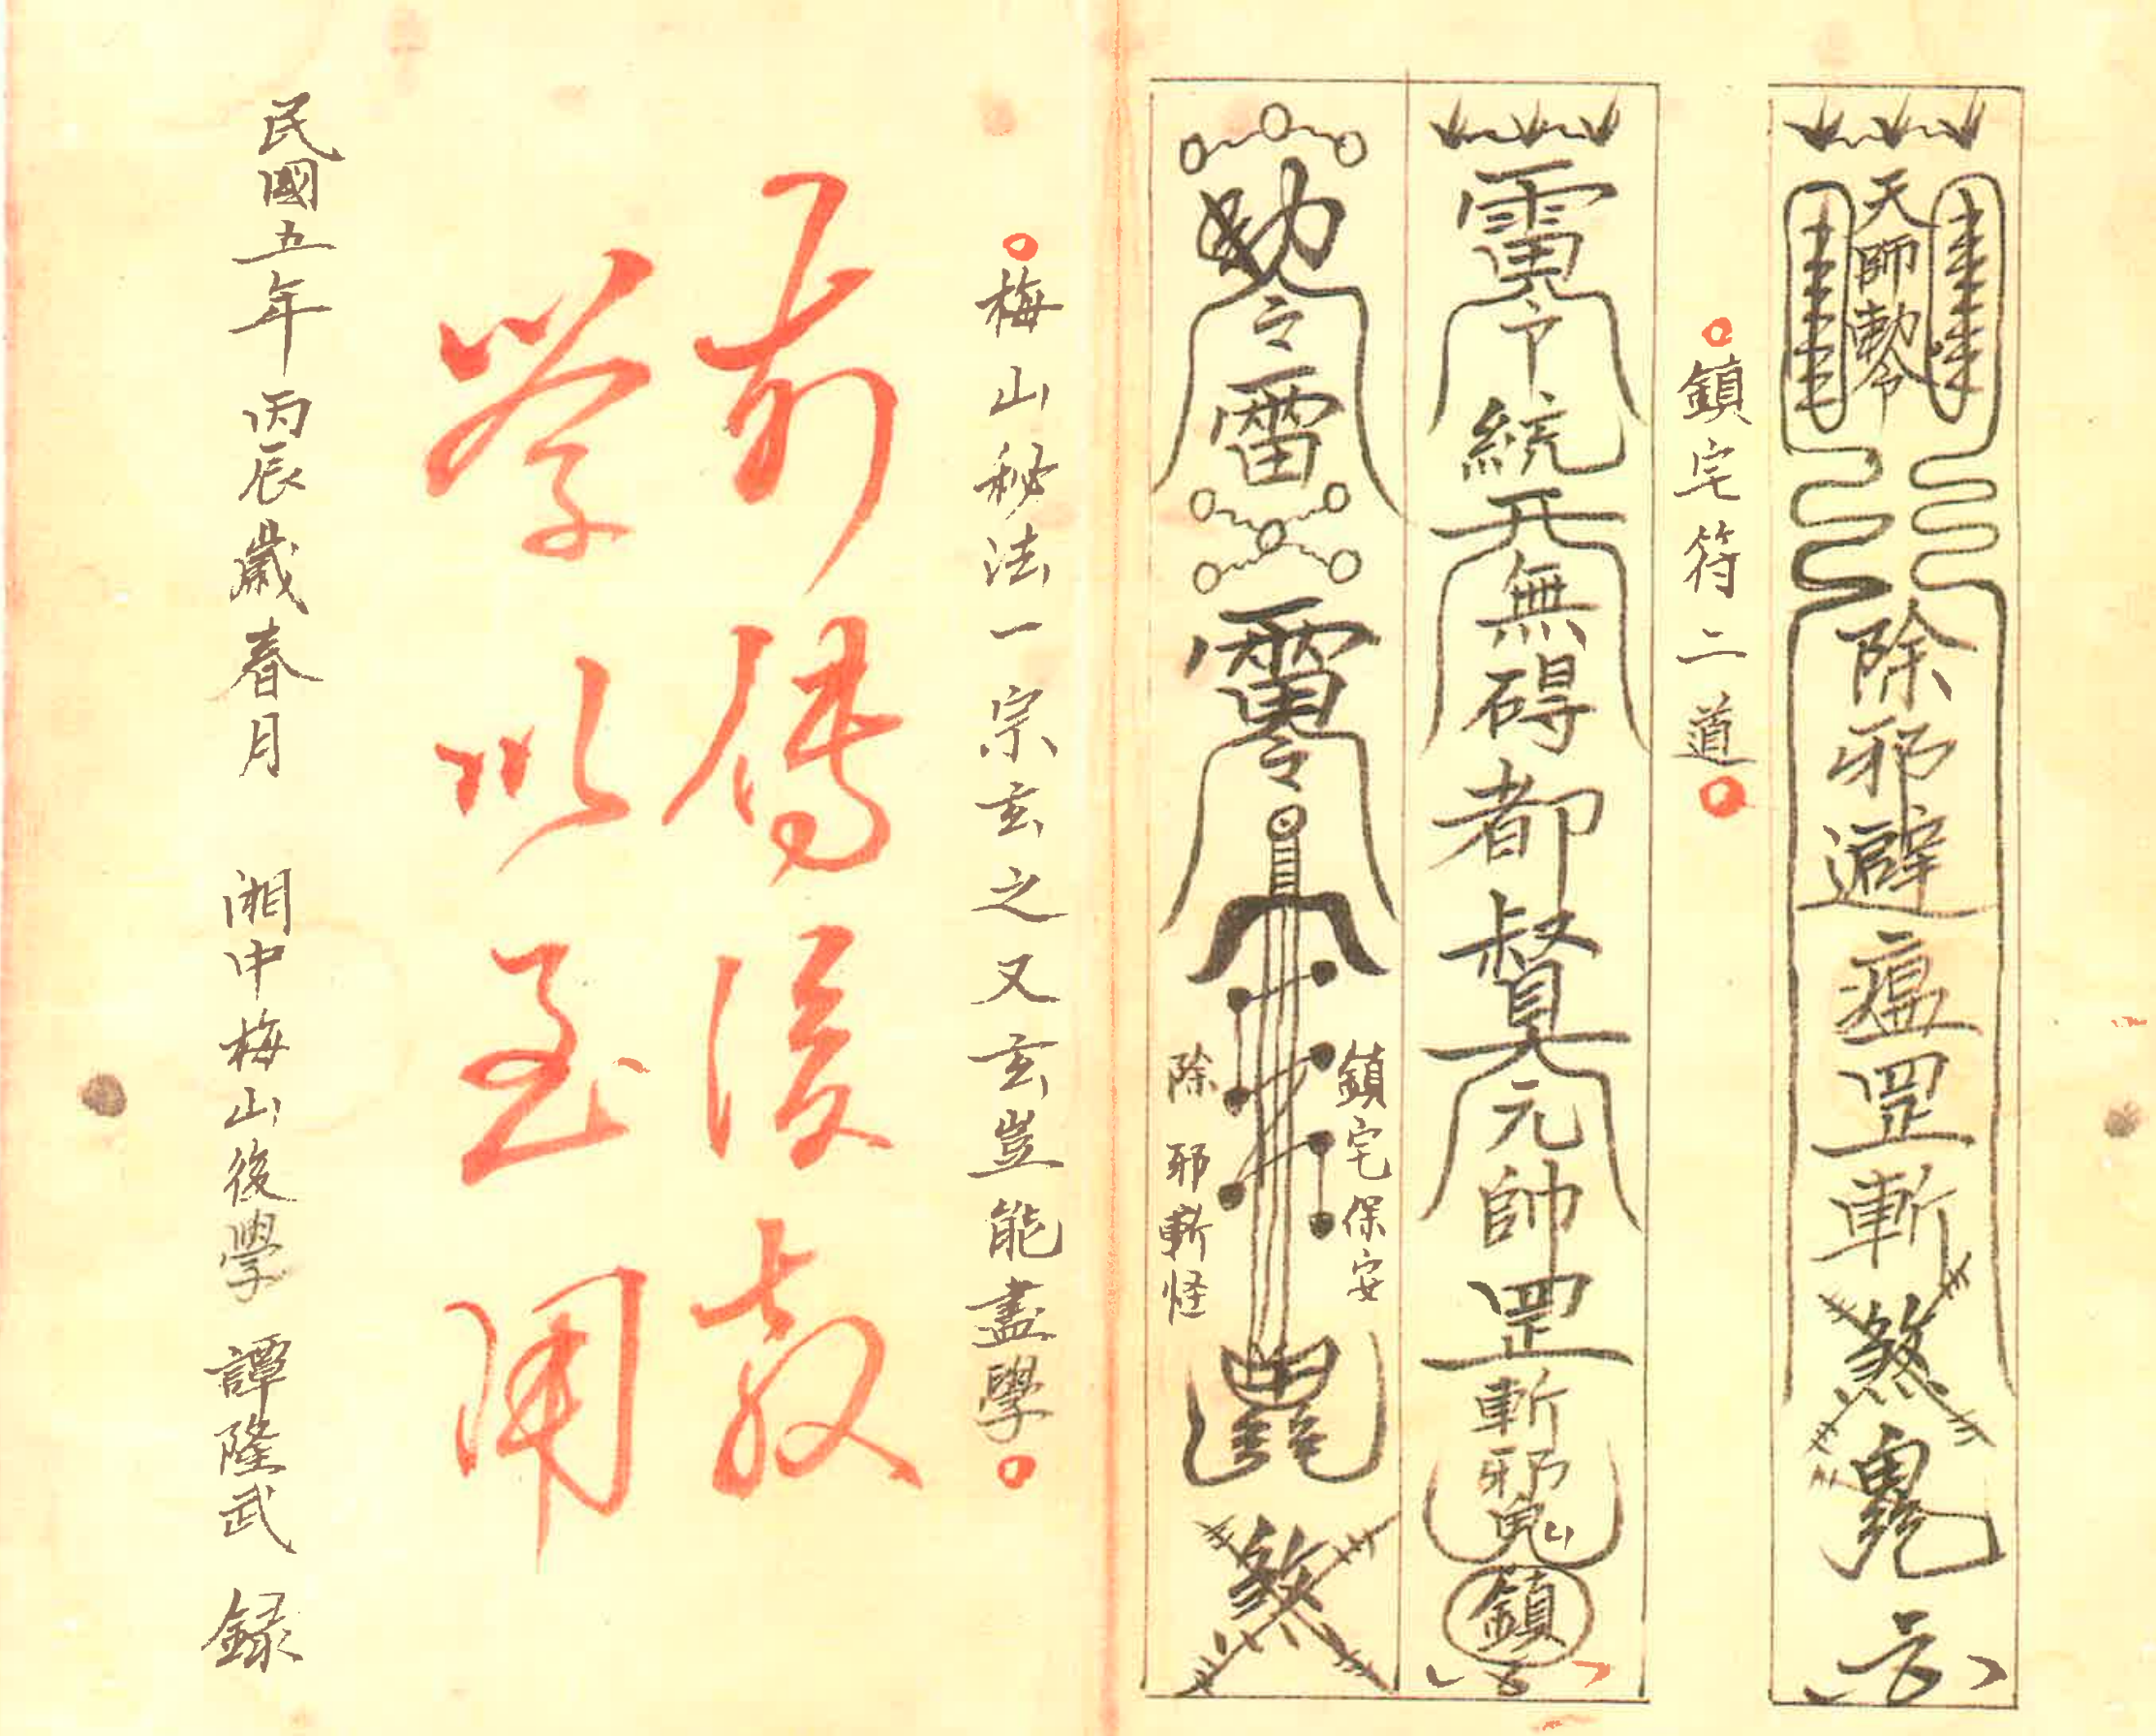 天師勅令
除邪避瘟罡斬煞
鎮宅符二道
統
無碍都督元帥罡斬邪鬼
鎮
令雷
令
鎮宅保安
除邪斬怪
煞
梅山秘法一宗玄之又玄豈能盡學
前傳後教
學以至用
民國五年丙辰歲春月 湘中梅山後學 譚隆武 録